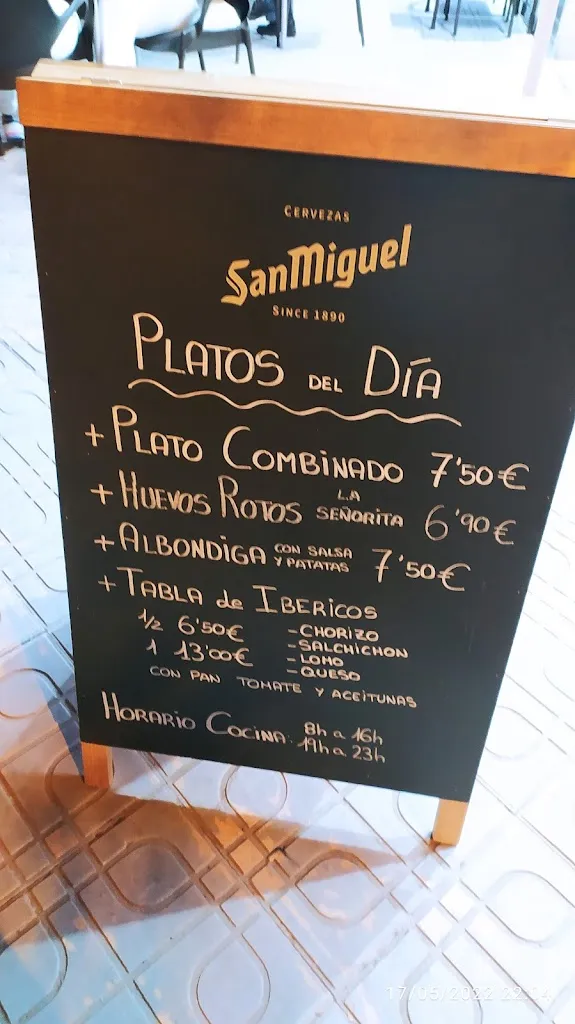 CERVEZAS
SanMiguel
SINCE 1890
PLATOS DEL DÍA
+ PLATO COMBINADO 7'50€
+ HUEVOS ROTOS LA SEÑORITA 6'90€
+ ALBONDIGA CON SALSA Y PATATAS 7'50€
+ TABLA de IBERICOS
1/2 6'50€ - CHORIZO
- SALCHICHON
1 13'00€ - LOMO
- QUESO
CON PAN TOMATE Y ACEITUNAS
HORARIO COCINA: 8h a 16h
19h a 23h
17/05/2022 22:04